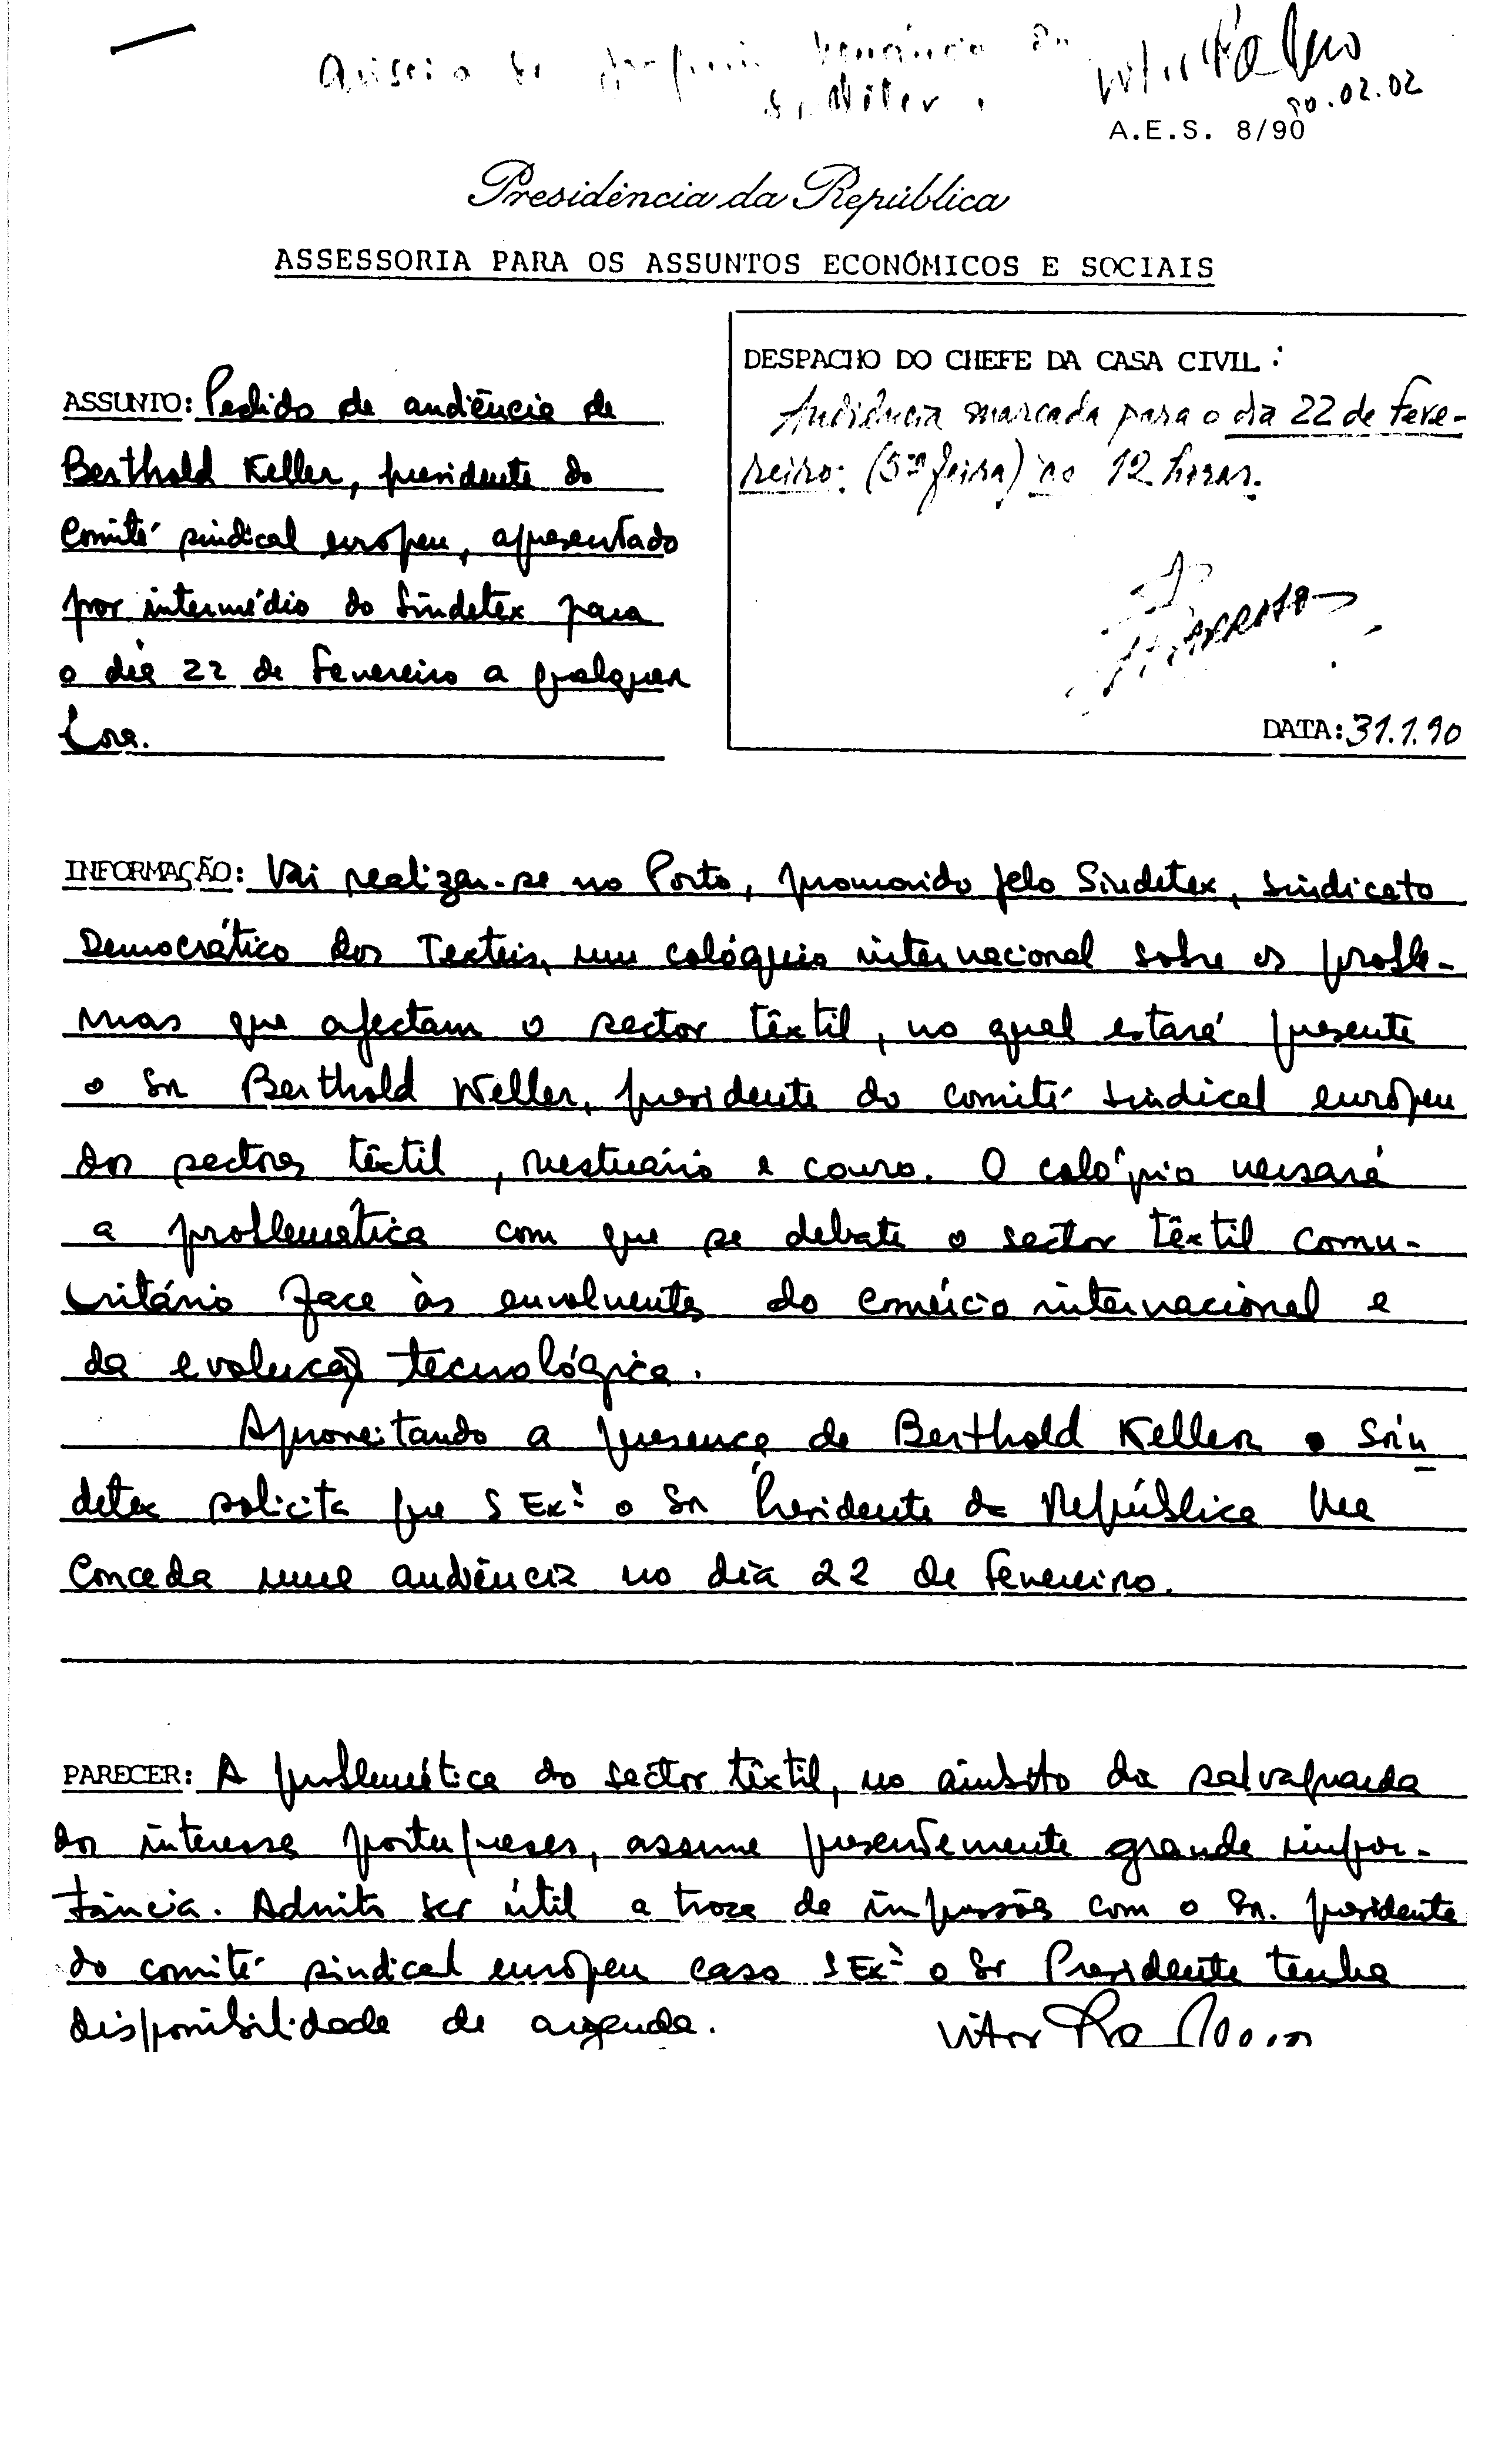 Avisei o Sr
A.E.S. 8/90
90.02.02
Presidência da República
ASSESSORIA PARA OS ASSUNTOS ECONÓMICOS E SOCIAIS
ASSUNTO: Pedido de audiência de
Berthold Keller, presidente do
Comité sindical europeu, apresentado
por intermédio do Sindetex para
o dia 22 de Fevereiro a qualquer
hora.
DESPACHO DO CHEFE DA CASA CIVIL:
Audiência marcada para o dia 22 de Feve-
reiro: (5ª feira) às 12 horas.
DATA: 31.1.90
INFORMAÇÃO: Vai realizar-se no Porto, promovido pelo Sindetex, Sindicato
Democrático dos Texteis, um colóquio internacional sobre os proble-
mas que afectam o sector têxtil, no qual estará presente
o Sr Berthold Keller, presidente do comité sindical europeu
dos sectores têxtil, vestuário e couro. O colóquio versará
a problemática com que se debate o sector têxtil comu-
nitário face às envolventes do comércio internacional e
da evolução tecnológica.
Aproveitando a presença de Berthold Keller o Sin
detex solicita que S Exª o Sr Presidente da República lhe
conceda uma audiência no dia 22 de Fevereiro.
PARECER: A problemática do sector têxtil, no âmbito da salvaguarda
dos interesses portugueses, assume presentemente grande impor-
tância. Admito ser útil a troca de impressões com o Sr. presidente
do comité sindical europeu caso S Exª o Sr Presidente tenha
disponibilidade de agenda.
Vitor Ramalho